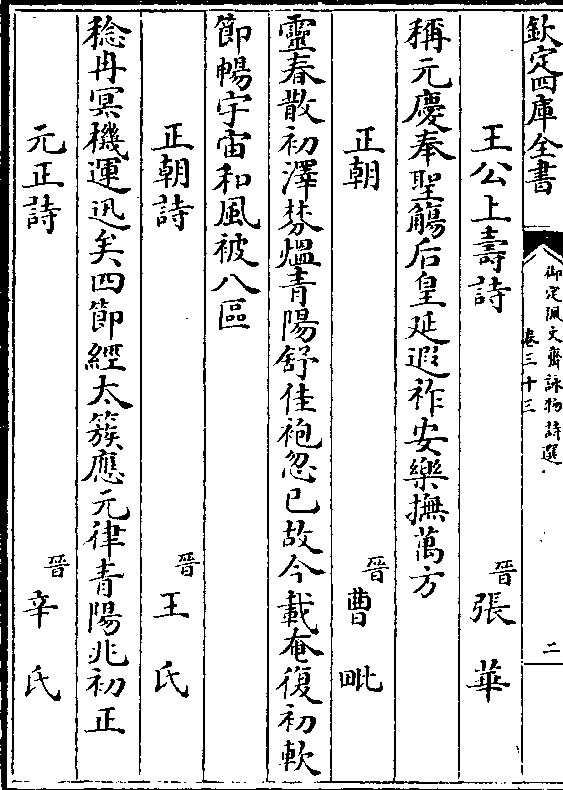 欽定四庫全書
御定佩文齋詠物詩選
卷三十三
二
王公上壽詩 晉 張華
稱元慶奉聖觴后皇延遐祚安樂撫萬方
正朝 晉 曹毗
靈春散初澤棼熅青陽舒佳袍忽已故今載奄復初軟
節暢宇宙和風被八區
正朝詩 晉 王氏
稔冉冥機運迅矣四節經太簇應元律青陽兆初正
元正詩 晉 辛氏